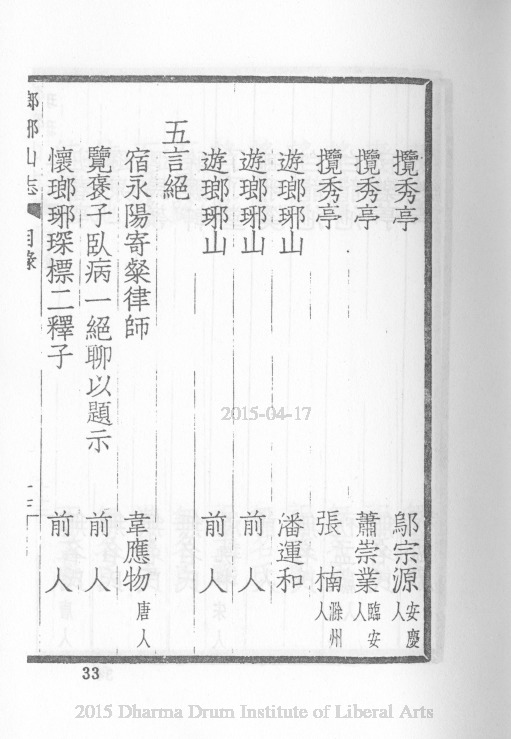 攬秀亭 鄔宗源 安慶人
攬秀亭 蕭崇業 臨安人
攬秀亭 張楠 滁州人
遊瑯琊山 潘運和
遊瑯琊山 前人
遊瑯琊山 前人
五言絕
宿永陽寄粲律師 韋應物 唐人
覽褒子臥病一絕聊以題示 前人
懷瑯琊琛標二釋子 前人
瑯琊山志 目錄
33
2015-04-17
2015 Dharma Drum Institute of Liberal Arts